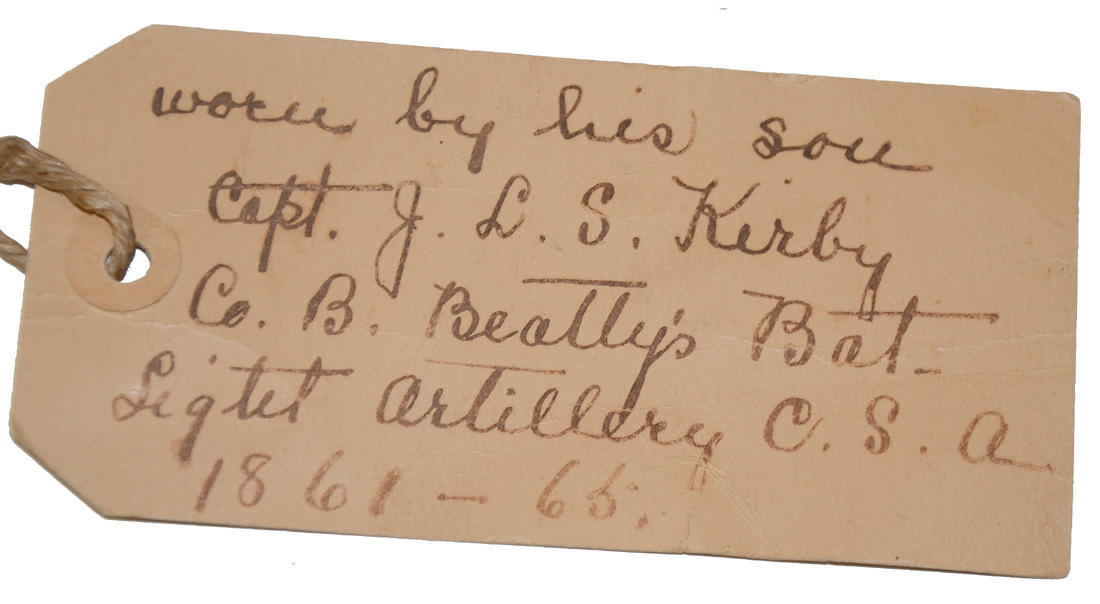 worn by his son
Capt. J. L. S. Kirby
Co. B. Beatty's Bat.
Light Artillery C. S. A.
1861 - 65.